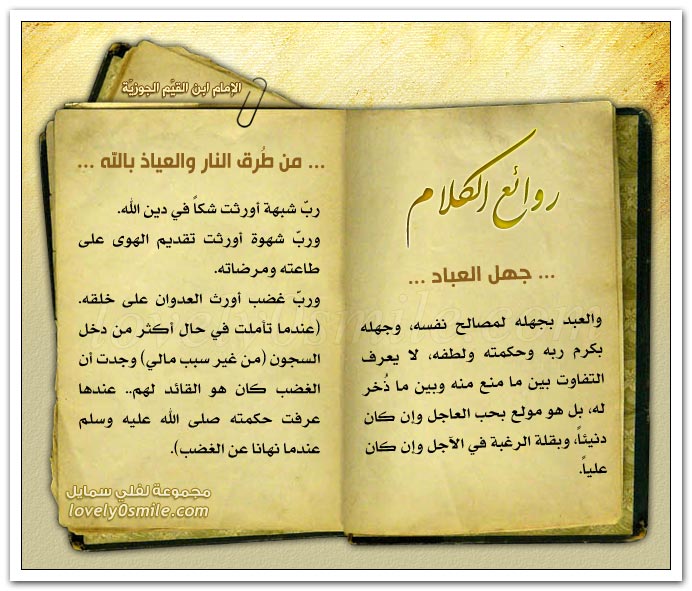 الإمام ابن القيّم الجوزيّة
روائع الكلام
... جهل العباد ...
والعبد بجهله لمصالح نفسه، وجهله
بكرم ربه وحكمته ولطفه، لا يعرف
التفاوت بين ما منع منه وبين ما ذُخر
له، بل هو مولع بحب العاجل وإن كان
دنيئاً، وبقلة الرغبة في الآجل وإن كان
علياً.
... من طُرق النار والعياذ بالله ...
ربّ شبهة أورثت شكاً في دين الله.
وربّ شهوة أورثت تقديم الهوى على
طاعته ومرضاته.
وربّ غضب أورث العدوان على خلقه.
(عندما تأملت في حال أكثر من دخل
السجون (من غير سبب مالي) وجدت أن
الغضب كان هو القائد لهم.. عندها
عرفت حكمته صلى الله عليه وسلم
عندما نهانا عن الغضب).
مجموعة لفلي سمايل
lovely0smile.com
lovely0smile.com